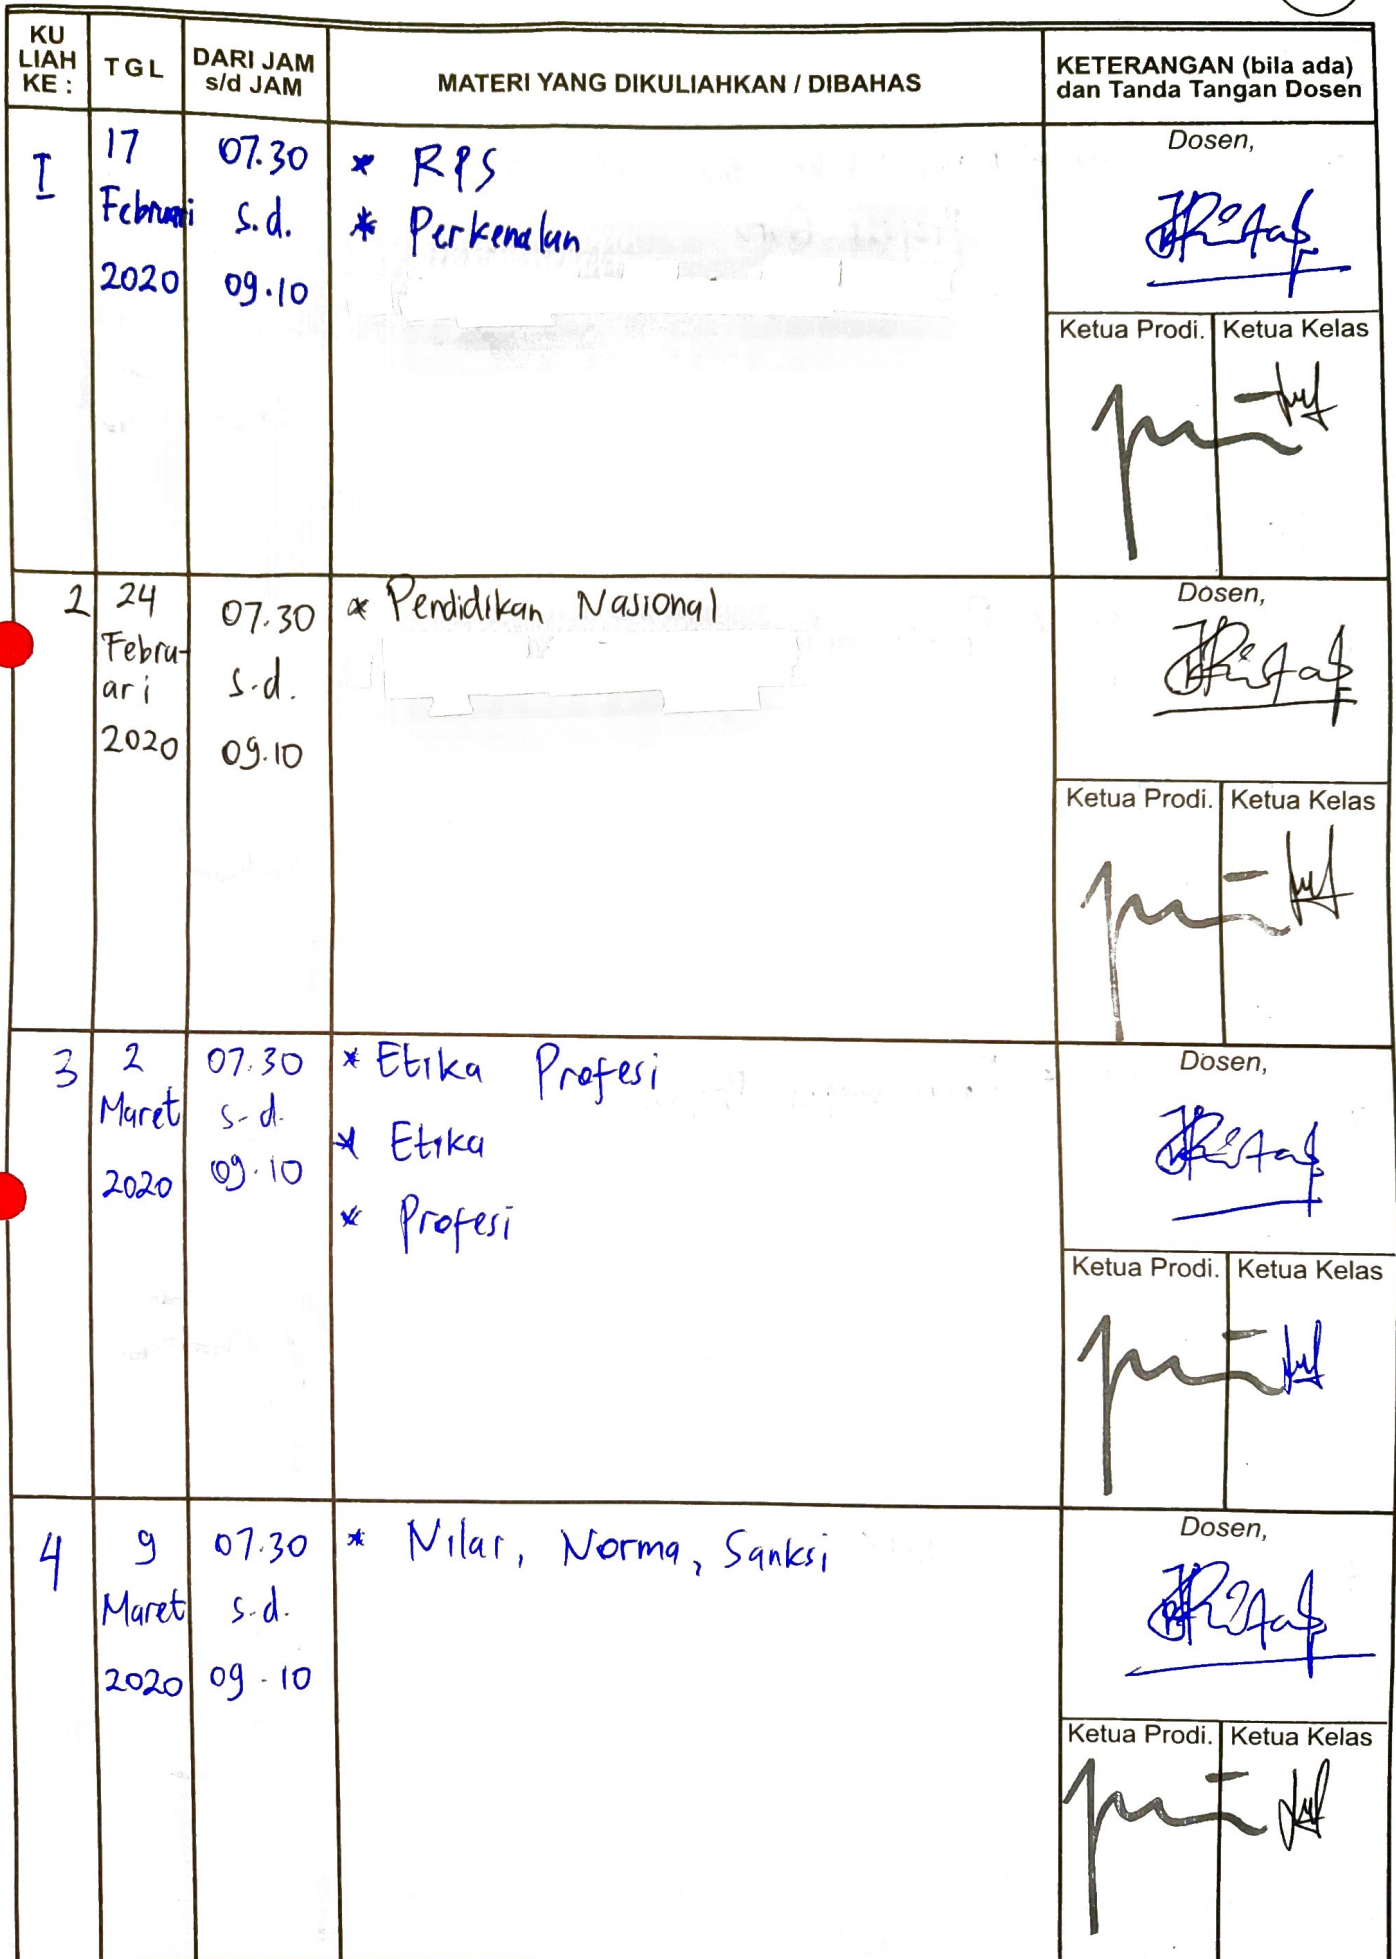 KU
LIAH
KE :
TGL
DARI JAM
s/d JAM
MATERI YANG DIKULIAHKAN / DIBAHAS
KETERANGAN (bila ada)
dan Tanda Tangan Dosen
I
17
Februari
2020
07.30
s.d.
09.10
* RPS
* Perkenalan
Dosen,
Ketua Prodi. Ketua Kelas
2
24
Febru-
ari
2020
07.30
s.d.
09.10
* Pendidikan Nasional
Dosen,
Ketua Prodi. Ketua Kelas
3
2
Maret
2020
07.30
s-d.
09.10
* Etika Profesi
* Etika
* Profesi
Dosen,
Ketua Prodi. Ketua Kelas
4
9
Maret
2020
07.30
s-d.
09-10
* Nilai, Norma, Sanksi
Dosen,
Ketua Prodi. Ketua Kelas